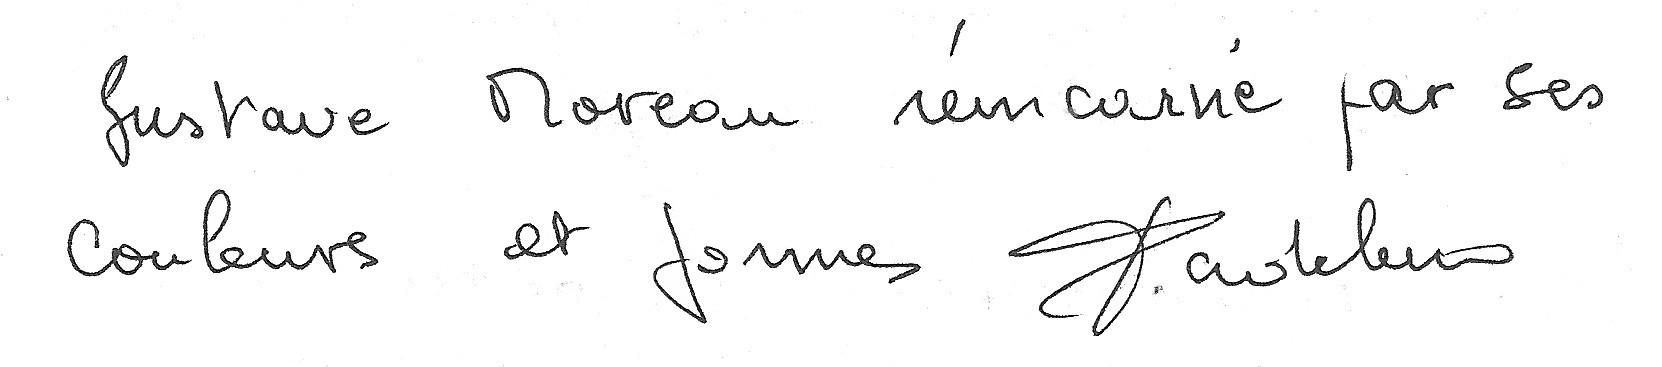 Gustave Moreau réincarné par ses
couleurs et formes